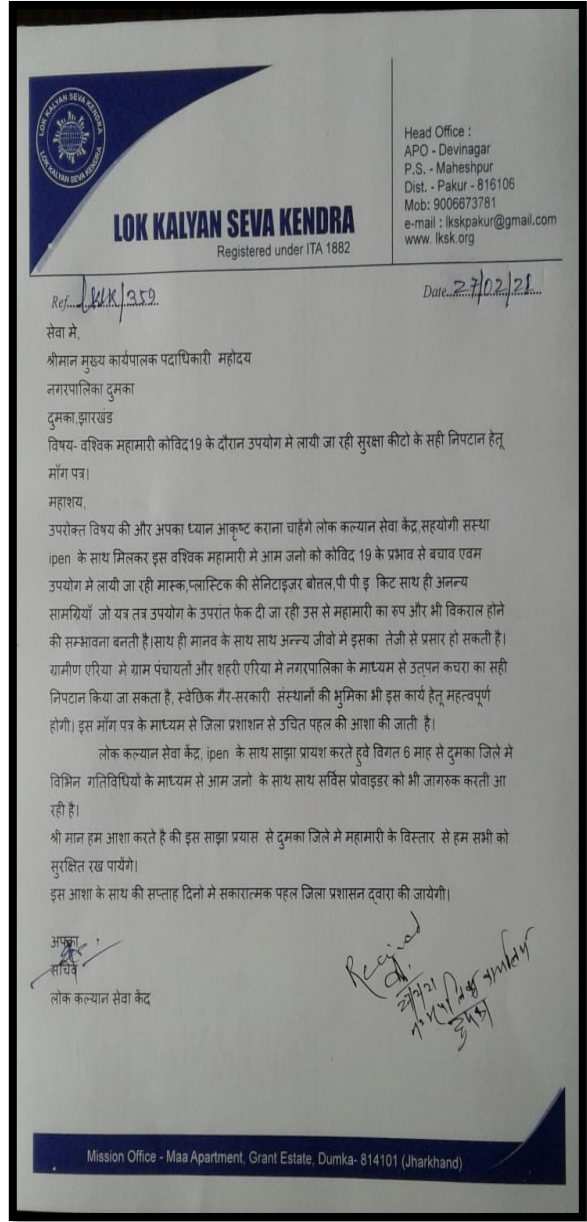 LOK KALYAN SEVA KENDRA
LOK KALYAN SEVA KENDRA
Head Office :
APO - Devinagar
P.S. - Maheshpur
Dist. - Pakur - 816106
Mob: 9006673781
e-mail : lkskpakur@gmail.com
www. lksk.org
LOK KALYAN SEVA KENDRA
Registered under ITA 1882
Ref....LKSK/359
Date..27/02/21....
सेवा मे,
श्रीमान मुख्य कार्यपालक पदाधिकारी महोदय
नगरपालिका दुमका
दुमका,झारखंड
विषय- वश्विक महामारी कोविद19 के दौरान उपयोग मे लायी जा रही सुरक्षा कीटो के सही निपटान हेतू
माँग पत्र।
महाशय,
उपरोक्त विषय की और अपका ध्यान आकृष्ट कराना चाहेंगे लोक कल्यान सेवा केंद्र,सहयोगी सस्था
ipen के साथ मिलकर इस वश्विक महामारी मे आम जनो को कोविद 19 के प्रभाव से बचाव एवम
उपयोग मे लायी जा रही मास्क,प्लास्टिक की सेनिटाइजर बोत्तल,पी पी इ किट साथ ही अनन्य
सामग्रियाँ जो यत्र तत्र उपयोग के उपरांत फेक दी जा रही उस से महामारी का रुप और भी विकराल होने
की सम्भावना बनती है।साथ ही मानव के साथ साथ अन्न्य जीवो मे इसका तेजी से प्रसार हो सकती है।
ग्रामीण एरिया मे ग्राम पंचायतों और शहरी एरिया मे नगरपालिका के माध्यम से उत्पन कचरा का सही
निपटान किया जा सकता है, स्वेछिक गैर-सरकारी संस्थानों की भुमिका भी इस कार्य हेतू महत्वपूर्ण
होगी। इस माँग पत्र के माध्यम से जिला प्रशाशन से उचित पहल की आशा की जाती है।
लोक कल्यान सेवा केंद्र, ipen के साथ साझा प्रायश करते हुवे विगत 6 माह से दुमका जिले मे
विभिन गतिविधियों के माध्यम से आम जनो के साथ साथ सर्विस प्रोवाइडर को भी जागरुक करती आ
रही है।
श्री मान हम आशा करते है की इस साझा प्रयास से दुमका जिले मे महामारी के विस्तार से हम सभी को
सुरक्षित रख पायेंगे।
इस आशा के साथ की सप्ताह दिनो मे सकारात्मक पहल जिला प्रशासन द्वारा की जायेगी।
अपका
सचिव
लोक कल्यान सेवा केंद
Received
दुमका
Mission Office - Maa Apartment, Grant Estate, Dumka- 814101 (Jharkhand)